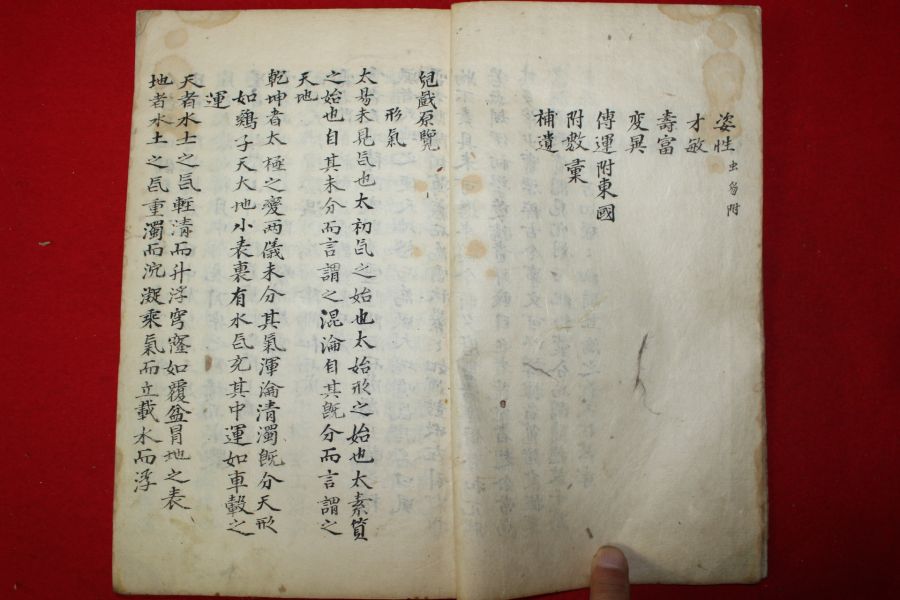 姿性 虫豸附
才敏
壽富
変異
傳運附東國
附数彙
補遺
兒戱原覽
形氣
太昜未見氣也太初氣之始也太始形之始也太素質
之始也自其未分而言謂之混淪自其旣分而言謂之
天地
乾坤者太極之變兩儀未分其氣渾淪清濁旣分天形
如鷄子天大地小表裏有水氣充其中運如車轂之
運
天者水土之氣輕清而升浮穹窿如覆盆冒地之表
地者水土之氣重濁而沉凝乘氣而立載水而浮